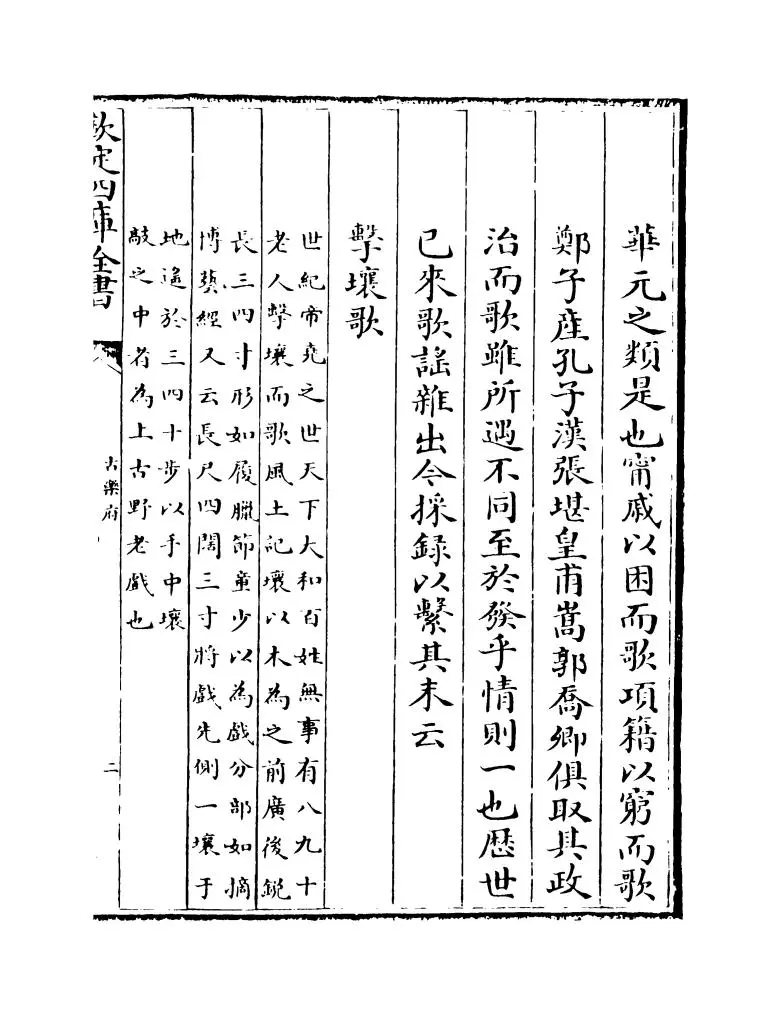 華元之類是也甯戚以困而歌項籍以窮而歌
鄭子産孔子漢張堪皇甫嵩郭喬卿俱取其政
治而歌雖所遇不同至於發乎情則一也歴世
已來歌謡雜出今採録以繫其末云
擊壤歌
世紀帝堯之世天下大和百姓無事有八九十
老人擊壤而歌風土記壤以木為之前廣後鋭
長三四寸形如履臘節童少以為戯分部如摘
博藝經又云長尺四闊三寸將戯先側一壤于
地遥於三四十歩以手中壤
敲之中者為上古野老戯也
欽定四庫全書
古樂府
二